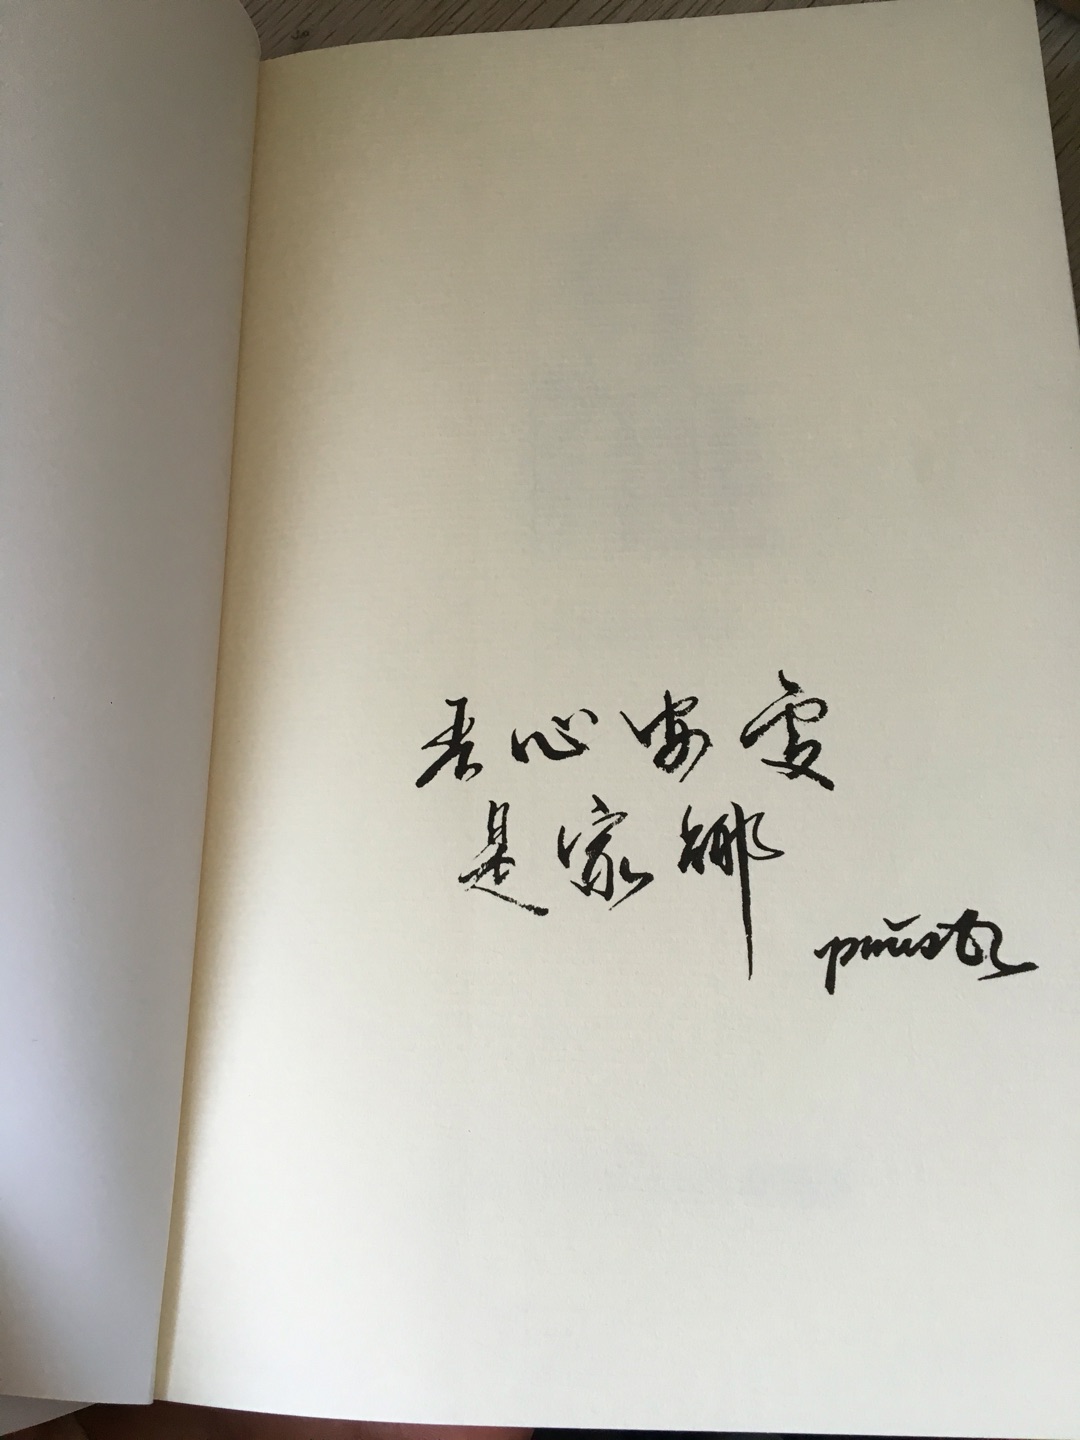 吾心安处
是家乡
priest